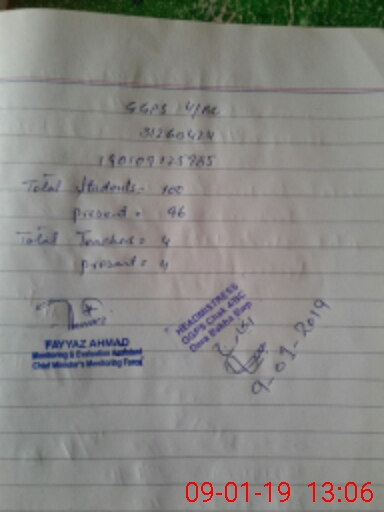 GGPS 4/BC
31260424
Total Students = 100
present = 96
Total Teachers = 4
present = 4
FAYYAZ AHMAD
Monitoring & Evaluation Assistant
Chief Minister's Monitoring Force
HEADMISTRESS
GGPS Chak 4/BC
Dera Bakha Bwp
9-01-2019
09-01-19 13:06